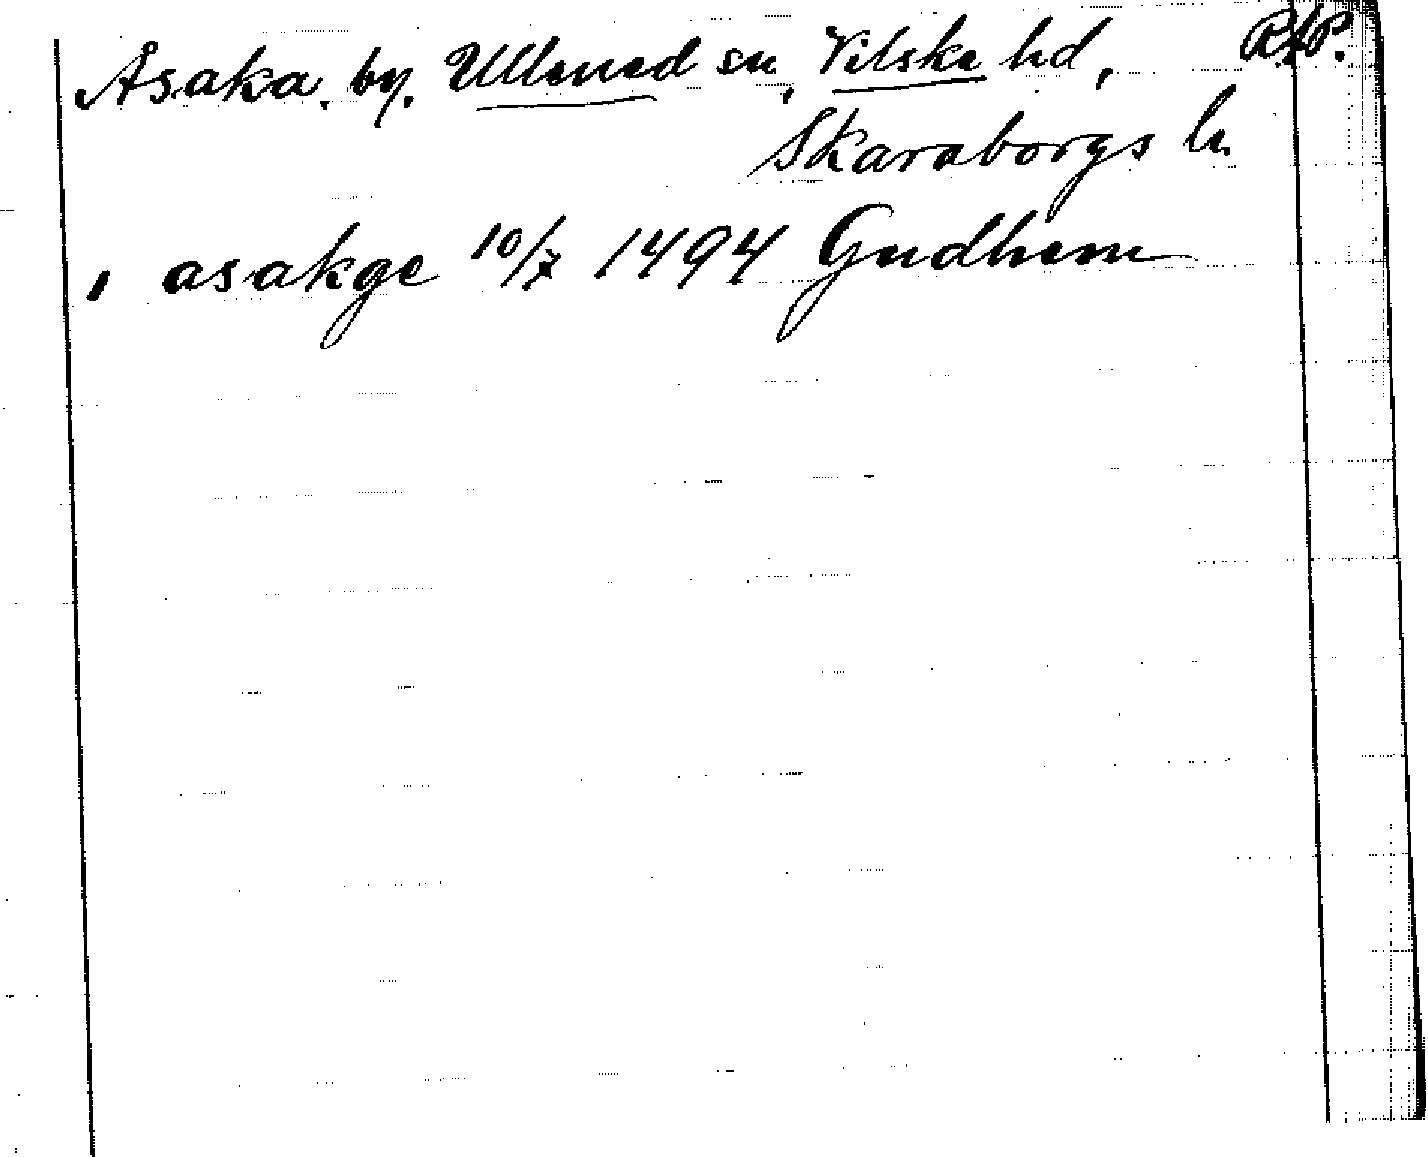 Åsaka. by. Ullened sn, Vilske hd, RAP.
Skaraborgs ln.
, asakge 10/7 1494 Gudhem